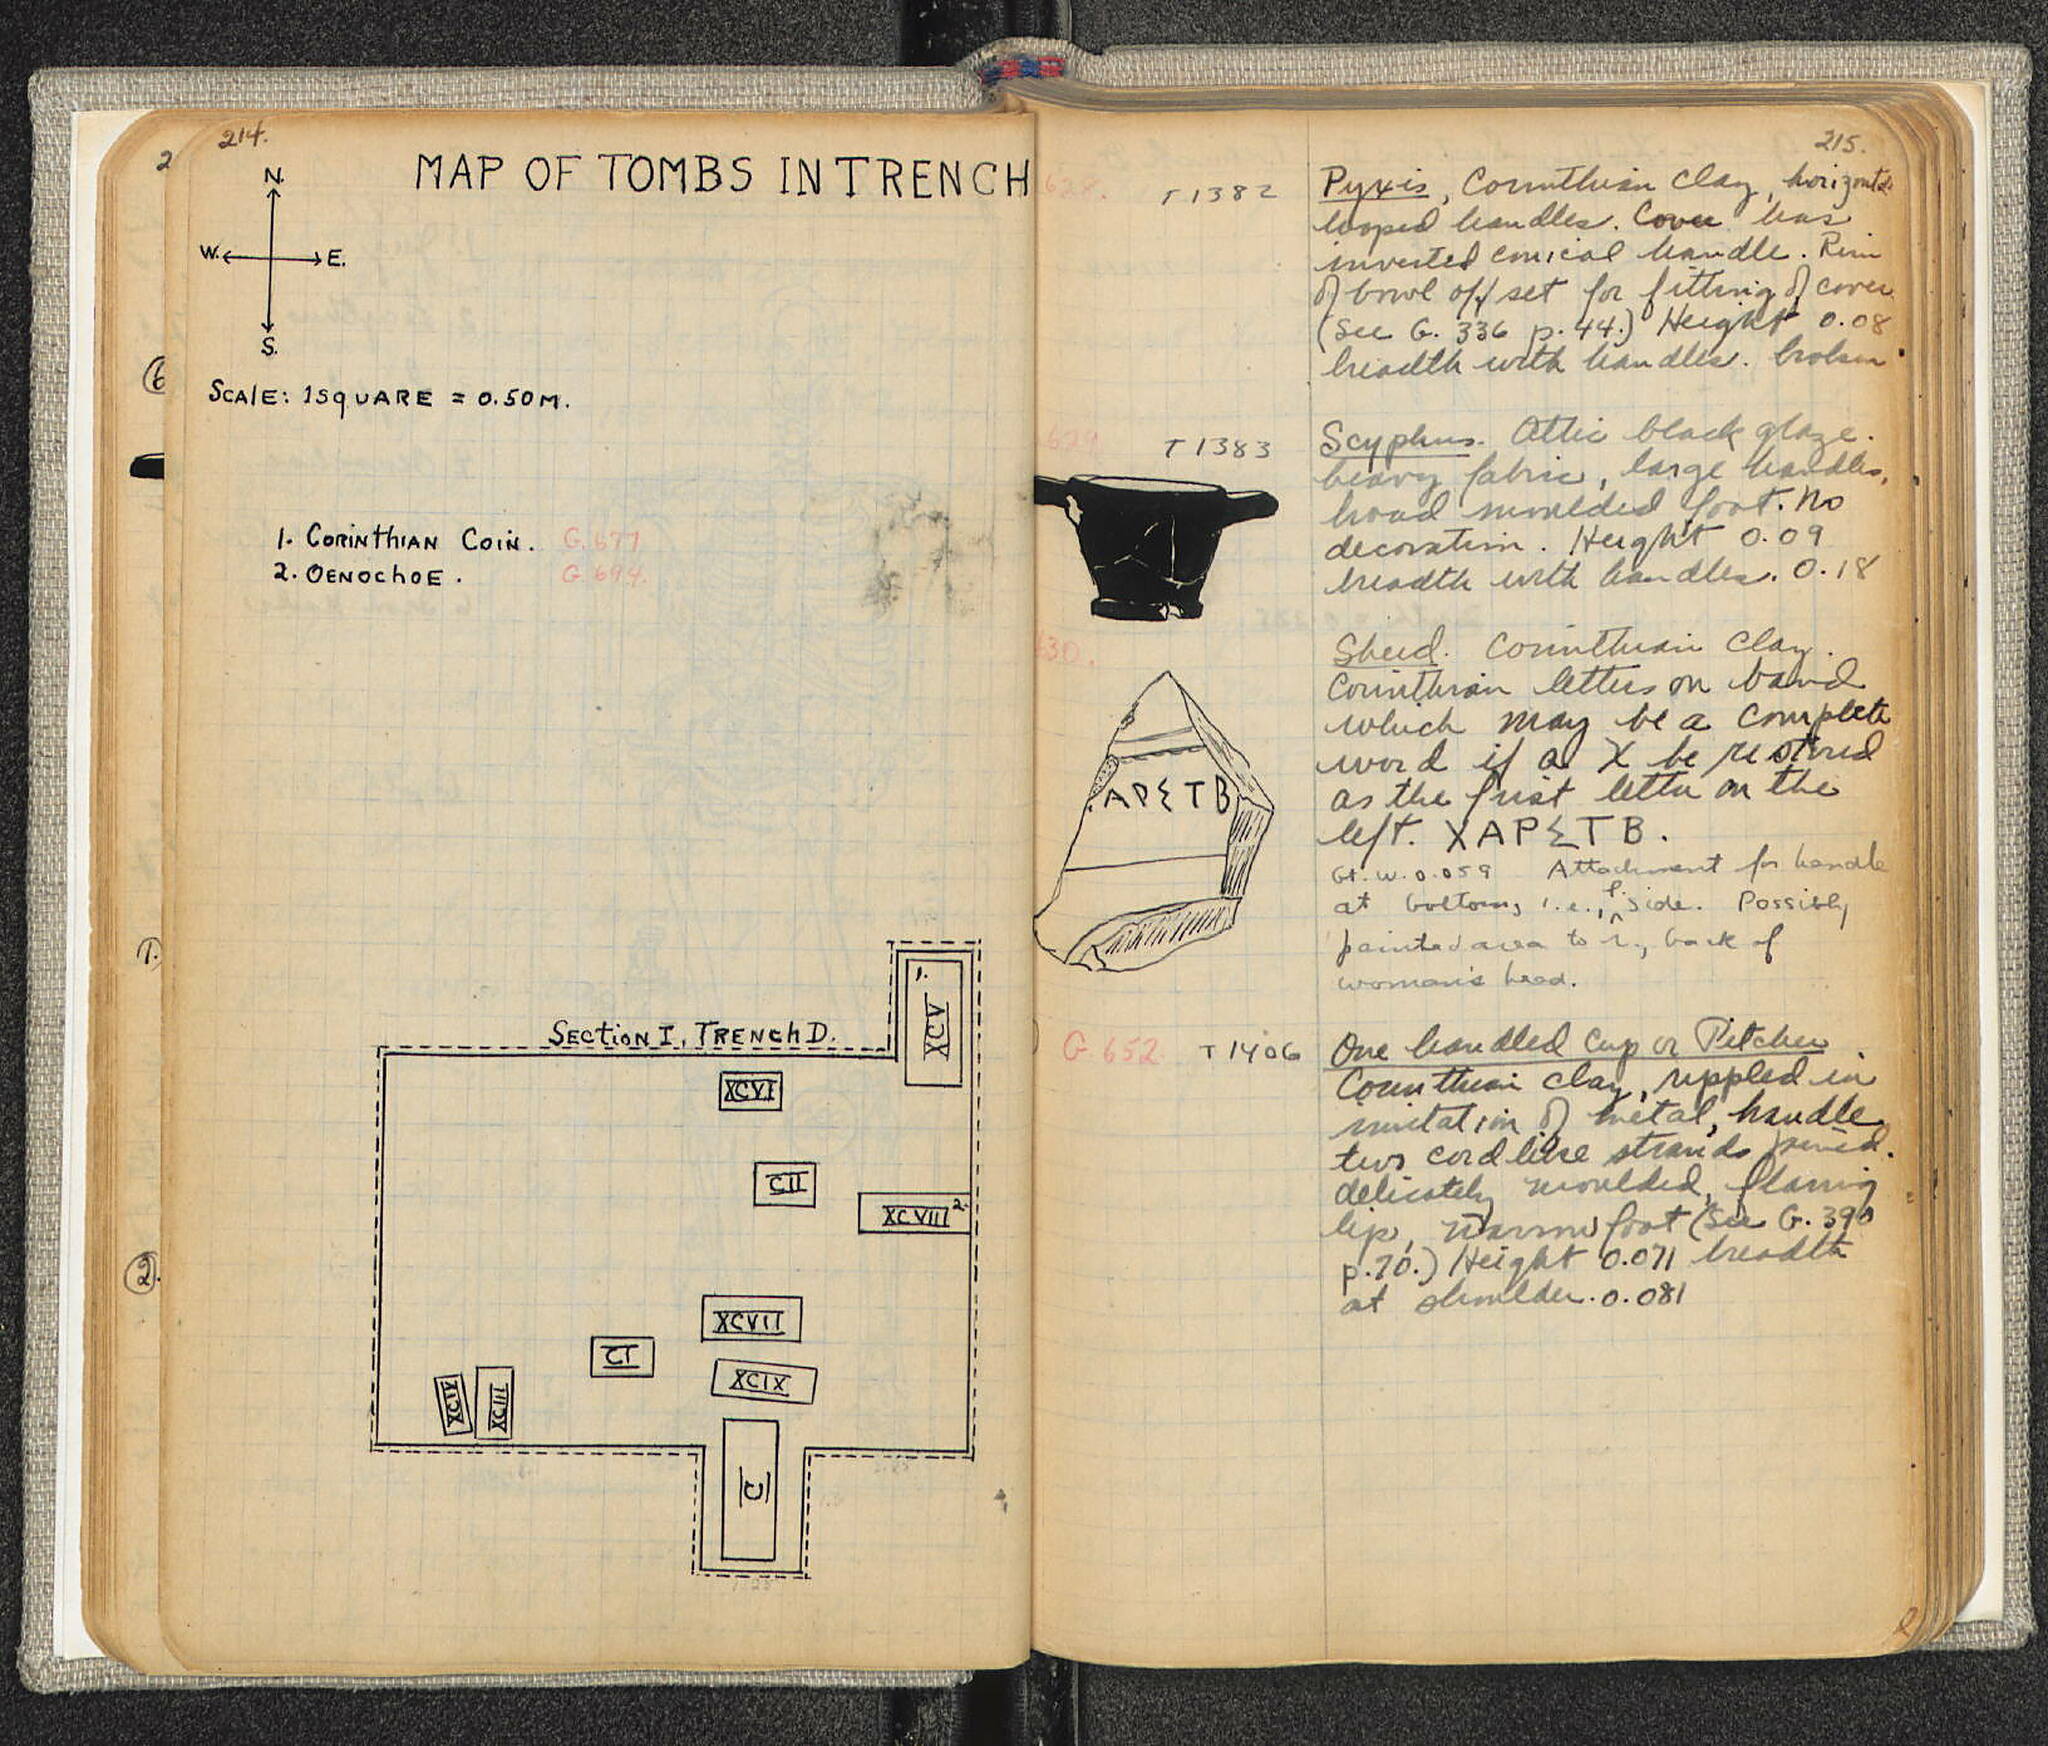 214.
MAP OF TOMBS IN TRENCH
N.
W. E.
S.
SCALE: 1 SQUARE = 0.50 M.
1. CORINTHIAN COIN. G. 677
2. OENOCHOE. G. 694.
1.
XCV
SECTION I, TRENCH D.
XCVI
CII
XCVIII 2.
XCVII
CI
XCIX
XCIV
XCIII
C
2
6
1.
2.
215.
628. T 1382
Pyxis, Corinthian clay, horizontal
looped handles. Cover has
inverted conical handle. Rim
of bowl offset for fitting of cover
(See G. 336 p. 44.) Height 0.08
breadth with handles. broken
629 T 1383
Scyphus. Attic black glaze.
heavy fabric, large handles,
broad moulded foot. No
decoration. Height 0.09
breadth with handles. 0.18
630.
.ΑΡΣΤΒ
Sherd. Corinthian clay.
Corinthian letters on band
which may be a complete
word if a X be restored
as the first letter on the
left. ΧΑΡΣΤΒ.
Gt. W. 0.059 Attachment for handle
at bottom, i.e., l. side. Possibly
painted area to r., back of
woman's head.
G 652 T 1406
One handled Cup or Pitcher
Corinthian clay, rippled in
imitation of metal, handle
two cordlike strands joined.
delicately moulded, flaring
lip, narrow foot (See G. 390
p. 70.) Height 0.071 breadth
at shoulder. 0.081